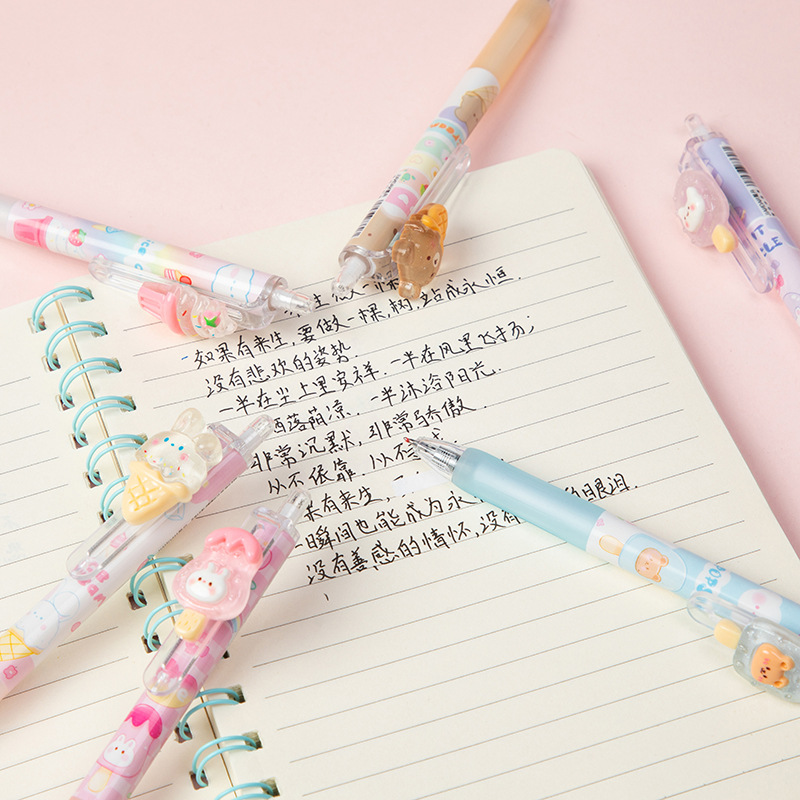 如果有来生,要做一棵树,站成永恒.
没有悲欢的姿势.
一半在尘土里安祥.一半在风里飞扬;
洒落荫凉.一半沐浴阳光.
非常沉默,非常骄傲.
从不依靠,从不
果有来生,
一瞬间也能成为永 的眼泪.
没有善感的情怀,没有